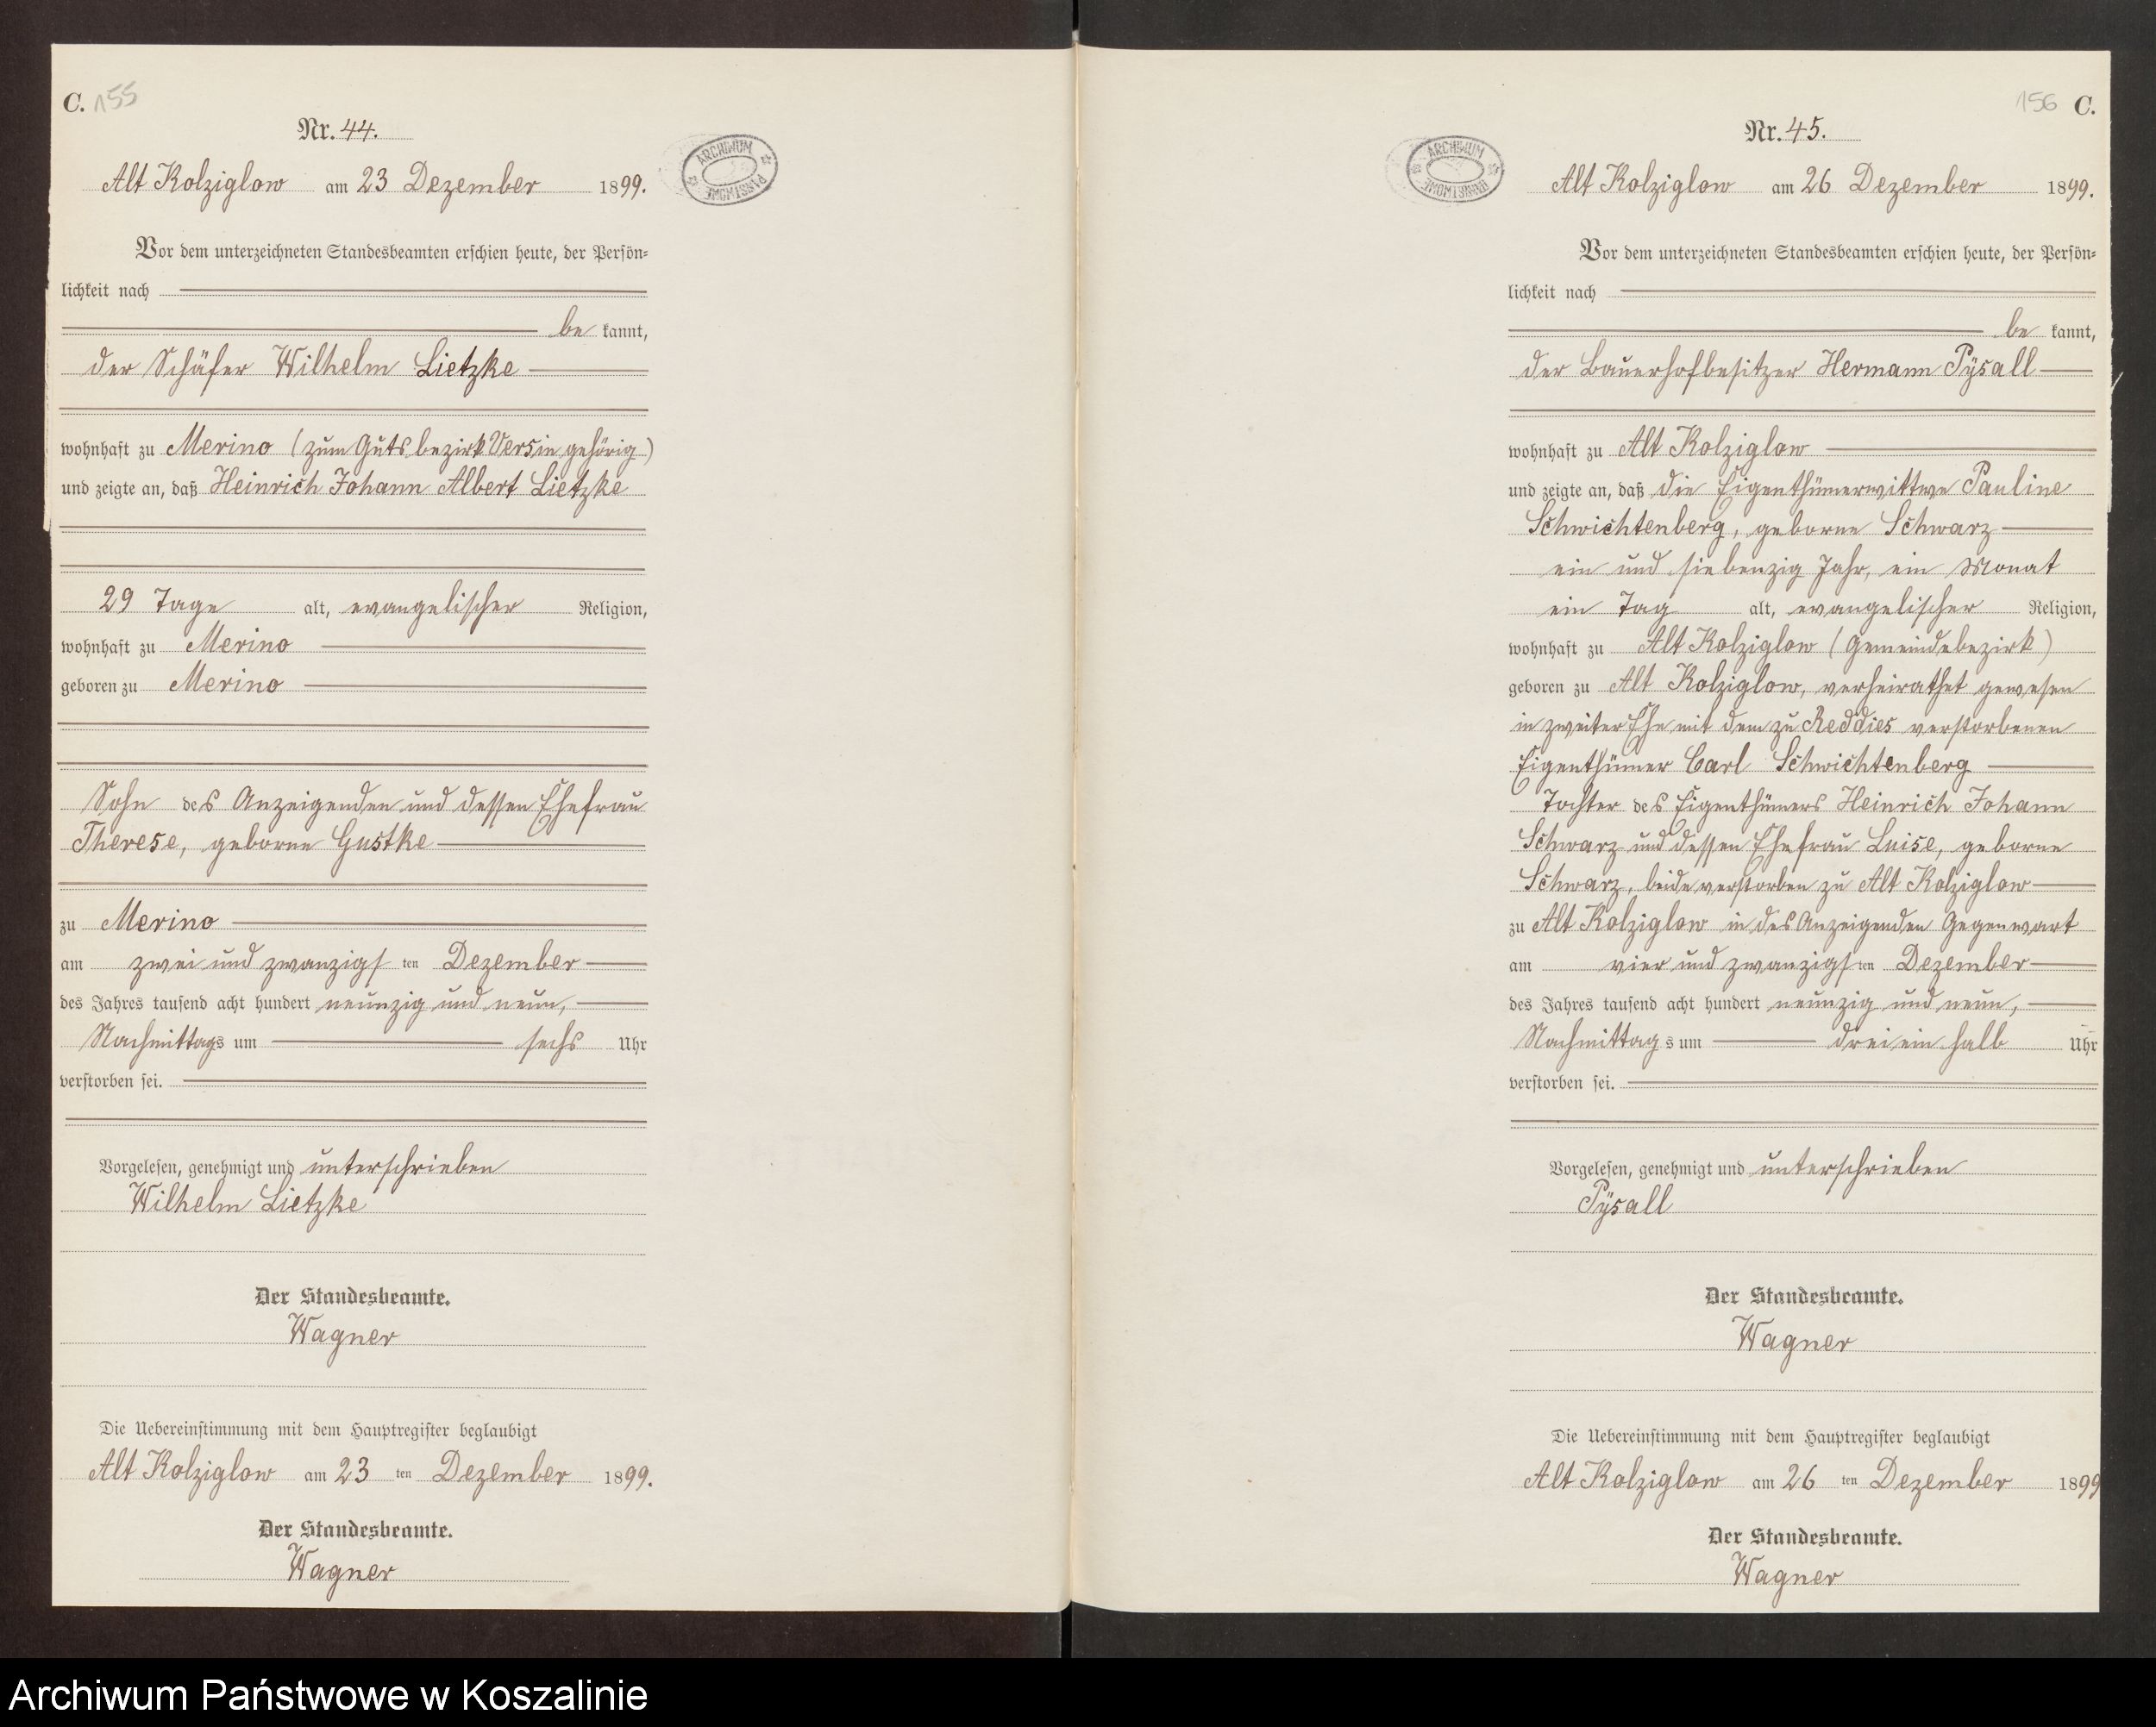 C. 155
Nr. 44.
Alt Kolziglow am 23 Dezember 1899.
ARCHIWUM PAŃSTWOWE
Vor dem unterzeichneten Standesbeamten erschien heute, der Persön-
lichkeit nach
be kannt,
der Schäfer Wilhelm Lietzke
wohnhaft zu Merino (zum Gutsbezirk Versin gehörig)
und zeigte an, daß Heinrich Johann Albert Lietzke
29 Tage alt, evangelischer Religion,
wohnhaft zu Merino
geboren zu Merino
Sohn des Anzeigenden und dessen Ehefrau
Therese, geborne Gustke
zu Merino
am zwei und zwanzigsten Dezember
des Jahres tausend acht hundert neunzig und neun,
Nachmittags um sechs Uhr
verstorben sei.
Vorgelesen, genehmigt und unterschrieben
Wilhelm Lietzke
Der Standesbeamte.
Wagner
Die Uebereinstimmung mit dem Hauptregister beglaubigt
Alt Kolziglow am 23 ten Dezember 1899.
Der Standesbeamte.
Wagner
156 C.
Nr. 45.
ARCHIWUM PAŃSTWOWE
Alt Kolziglow am 26 Dezember 1899.
Vor dem unterzeichneten Standesbeamten erschien heute, der Persön-
lichkeit nach
be kannt,
der Bauerhofbesitzer Hermann Pÿsall
wohnhaft zu Alt Kolziglow
und zeigte an, daß die Eigenthümerwittwe Pauline
Schwichtenberg, geborne Schwarz
ein und siebenzig Jahr, ein Monat
ein Tag alt, evangelischer Religion,
wohnhaft zu Alt Kolziglow (Gemeindebezirk)
geboren zu Alt Kolziglow, verheirathet gewesen
in zweiter Ehe mit dem zu Reddies verstorbenen
Eigenthümer Carl Schwichtenberg
Tochter des Eigenthümers Heinrich Johann
Schwarz und dessen Ehefrau Luise, geborne
Schwarz, beide verstorben zu Alt Kolziglow
zu Alt Kolziglow in des Anzeigenden Gegenwart
am vier und zwanzigsten Dezember
des Jahres tausend acht hundert neunzig und neun,
Nachmittags um drei ein halb Uhr
verstorben sei.
Vorgelesen, genehmigt und unterschrieben
Pÿsall
Der Standesbeamte.
Wagner
Die Uebereinstimmung mit dem Hauptregister beglaubigt
Alt Kolziglow am 26 ten Dezember 1899
Der Standesbeamte.
Wagner
Archiwum Państwowe w Koszalinie